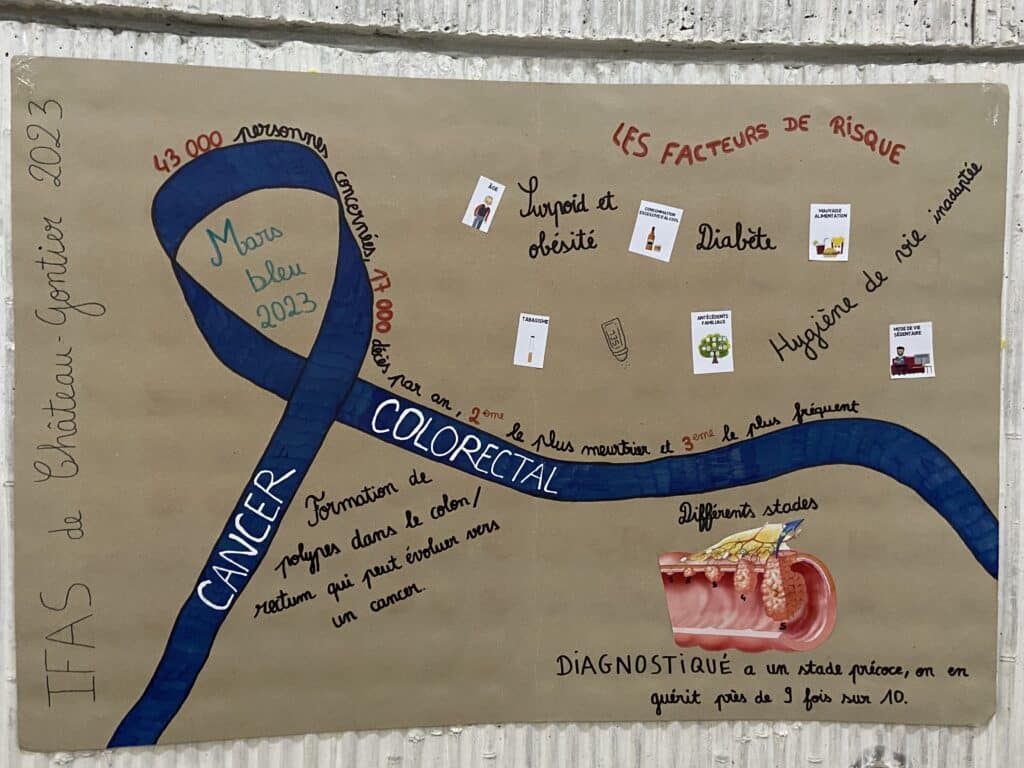 IFAS de Château-Gontier 2023
43 000 personnes concernées, 17 000 décès par an, 2ème le plus meurtrier et 3ème le plus fréquent
Mars
bleu
2023
CANCER
COLORECTAL
LES FACTEURS DE RISQUE
ÂGE
Surpoid et
obésité
CONSOMMATION
EXCESSIVE D'ALCOOL
Diabète
MAUVAISE
ALIMENTATION
Hygiène de vie inadaptée
TABAGISME
ANTÉCÉDENTS
FAMILIAUX
MODE DE VIE
SÉDENTAIRE
Formation de
polypes dans le colon/
rectum qui peut évoluer vers
un cancer.
Différents stades
4
5
DIAGNOSTIQUÉ a un stade précoce, on en
guérit près de 9 fois sur 10.